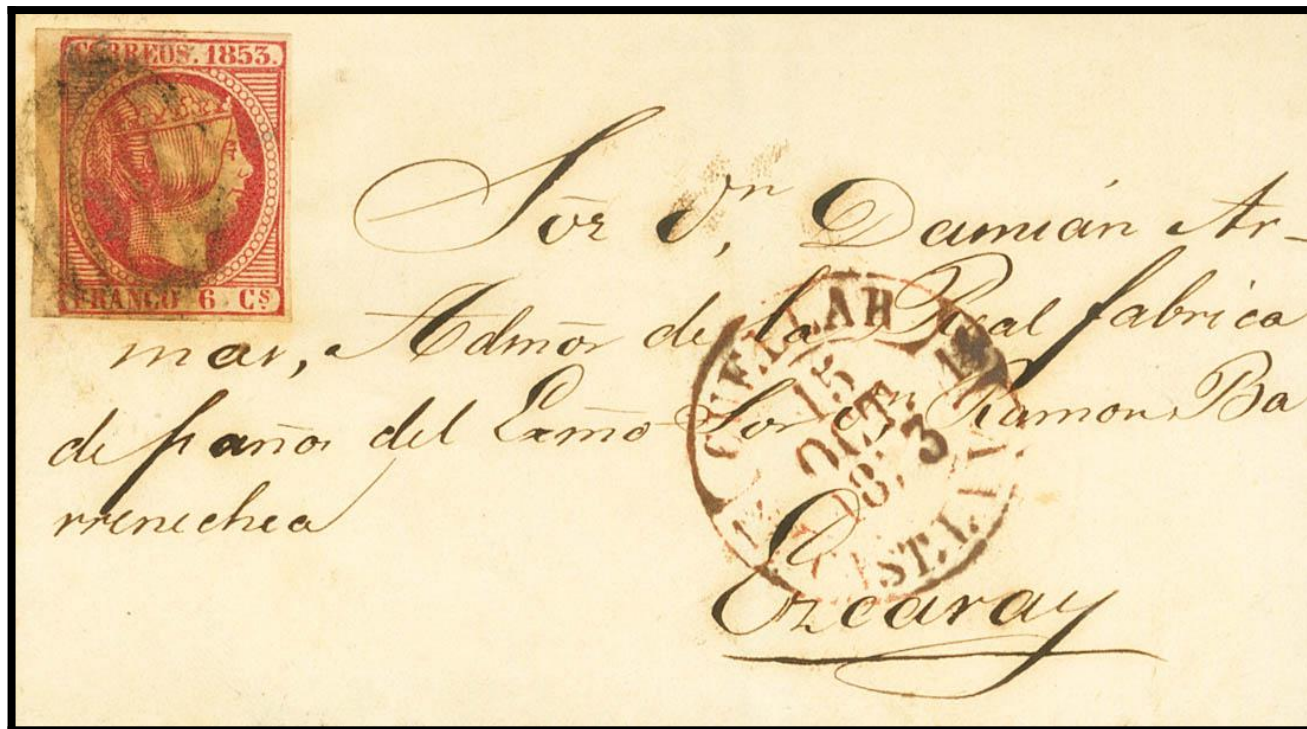 CORREOS. 1853.
FRANCO 6 Cs
Sor Dn, Damián Ar-
mar, Admor de la Real fabrica
de paños del Exmo Sor Dn Ramon Ba
rrenechea
Ezcaray
CUELLAR
15
OCT.
CAST. LA V.